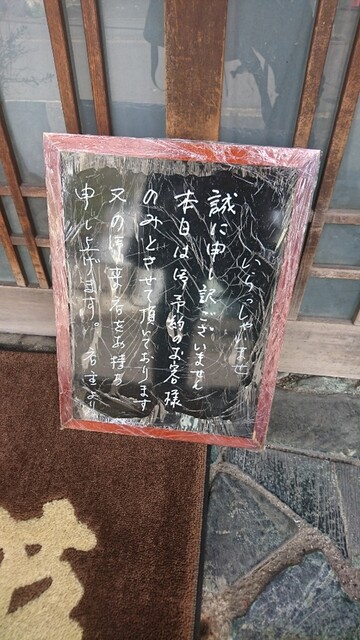 いらっしゃいませ
誠に申し訳ございません
本日は御予約のお客様
のみとさせて頂いております
又の御来店をお待ち
申し上げます。店主より